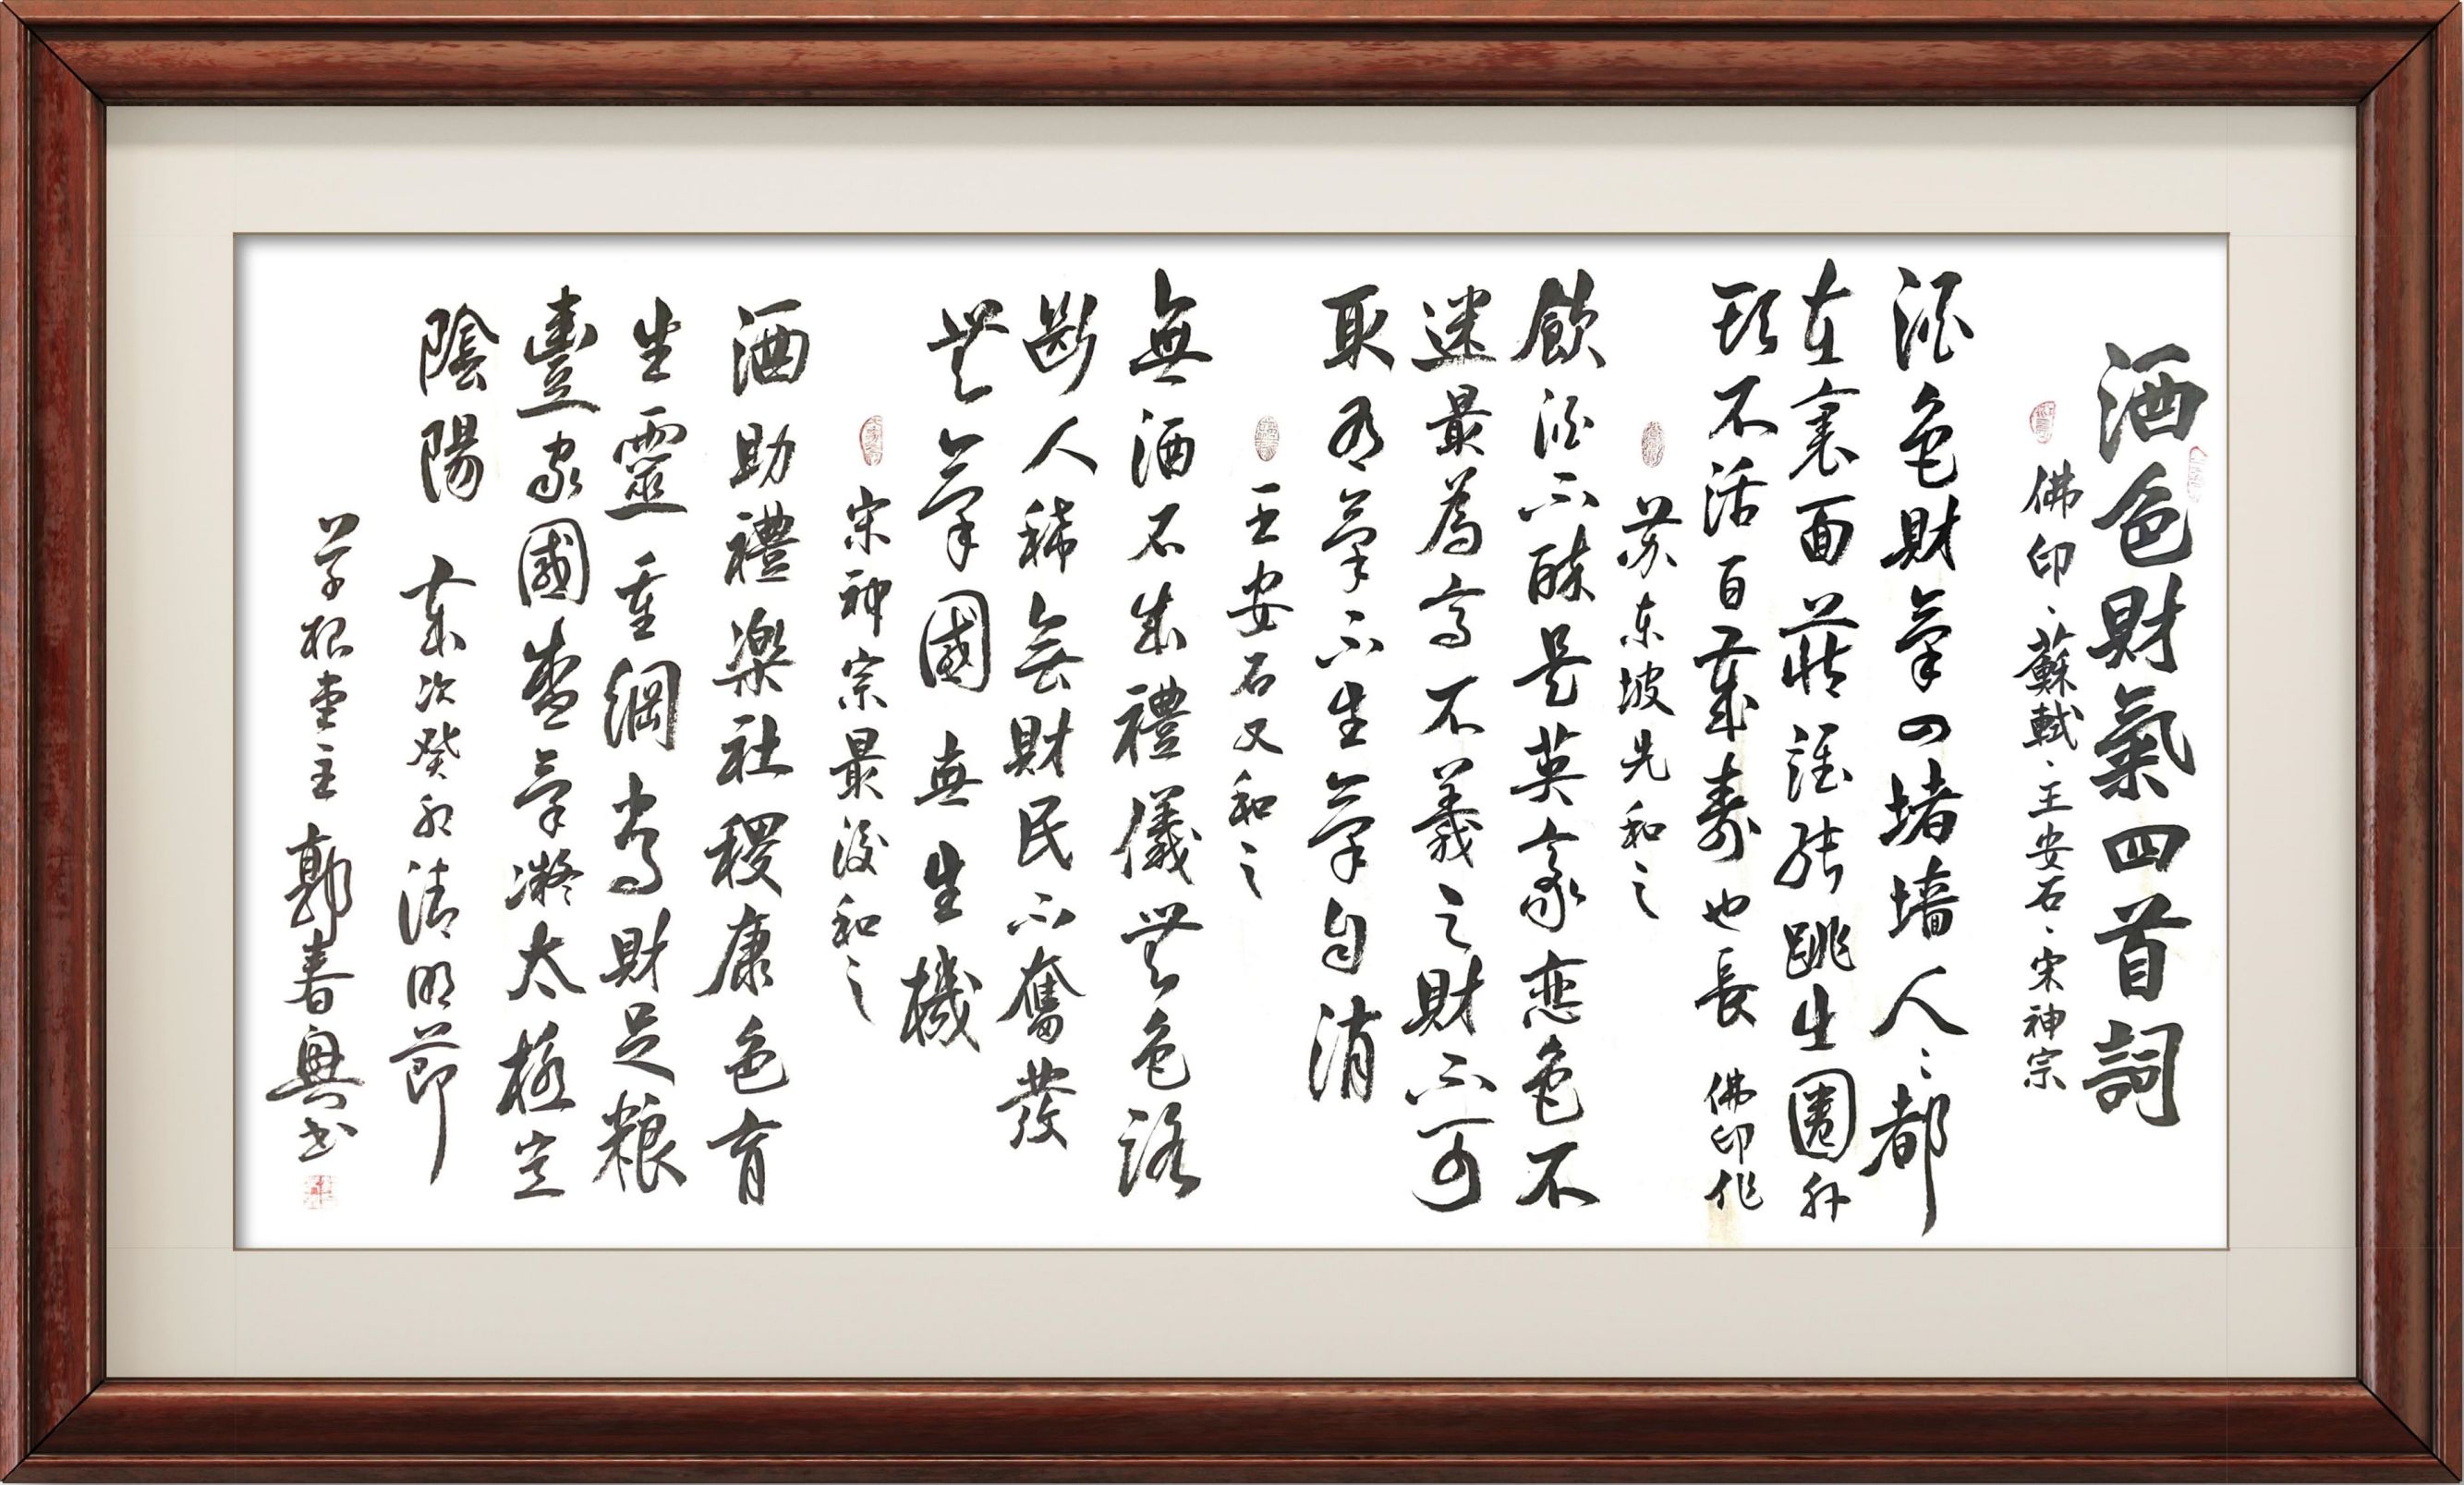 酒色財氣四首詞
佛印、蘇軾、王安石、宋神宗
酒色財氣四堵墙人々都
在裏面藏誰能跳出圈外
頭不活百歲壽也長 佛印作
苏东坡先和之
飲酒不醉是英豪恋色不
迷最為高不義之財不可
取有氣不生氣自消
王安石又和之
無酒不成禮儀無色路
斷人稀無財民不奮發
無氣國無生機
宋神宗最後和之
酒助禮樂社稷康色育
生靈重綱常財足粮
豐家國盛氣凝太極定
陰陽 歲次癸卯清明節
草根堂主郭春興书